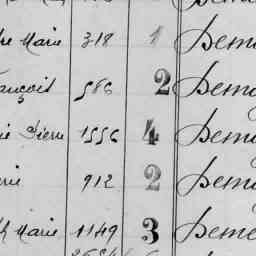 Marie 318 1 Deme
ançoit 586 2 Deme
ie Pierre 1556 4 Deme
rie 912 2 Deme
h Marie 1149 3 Deme